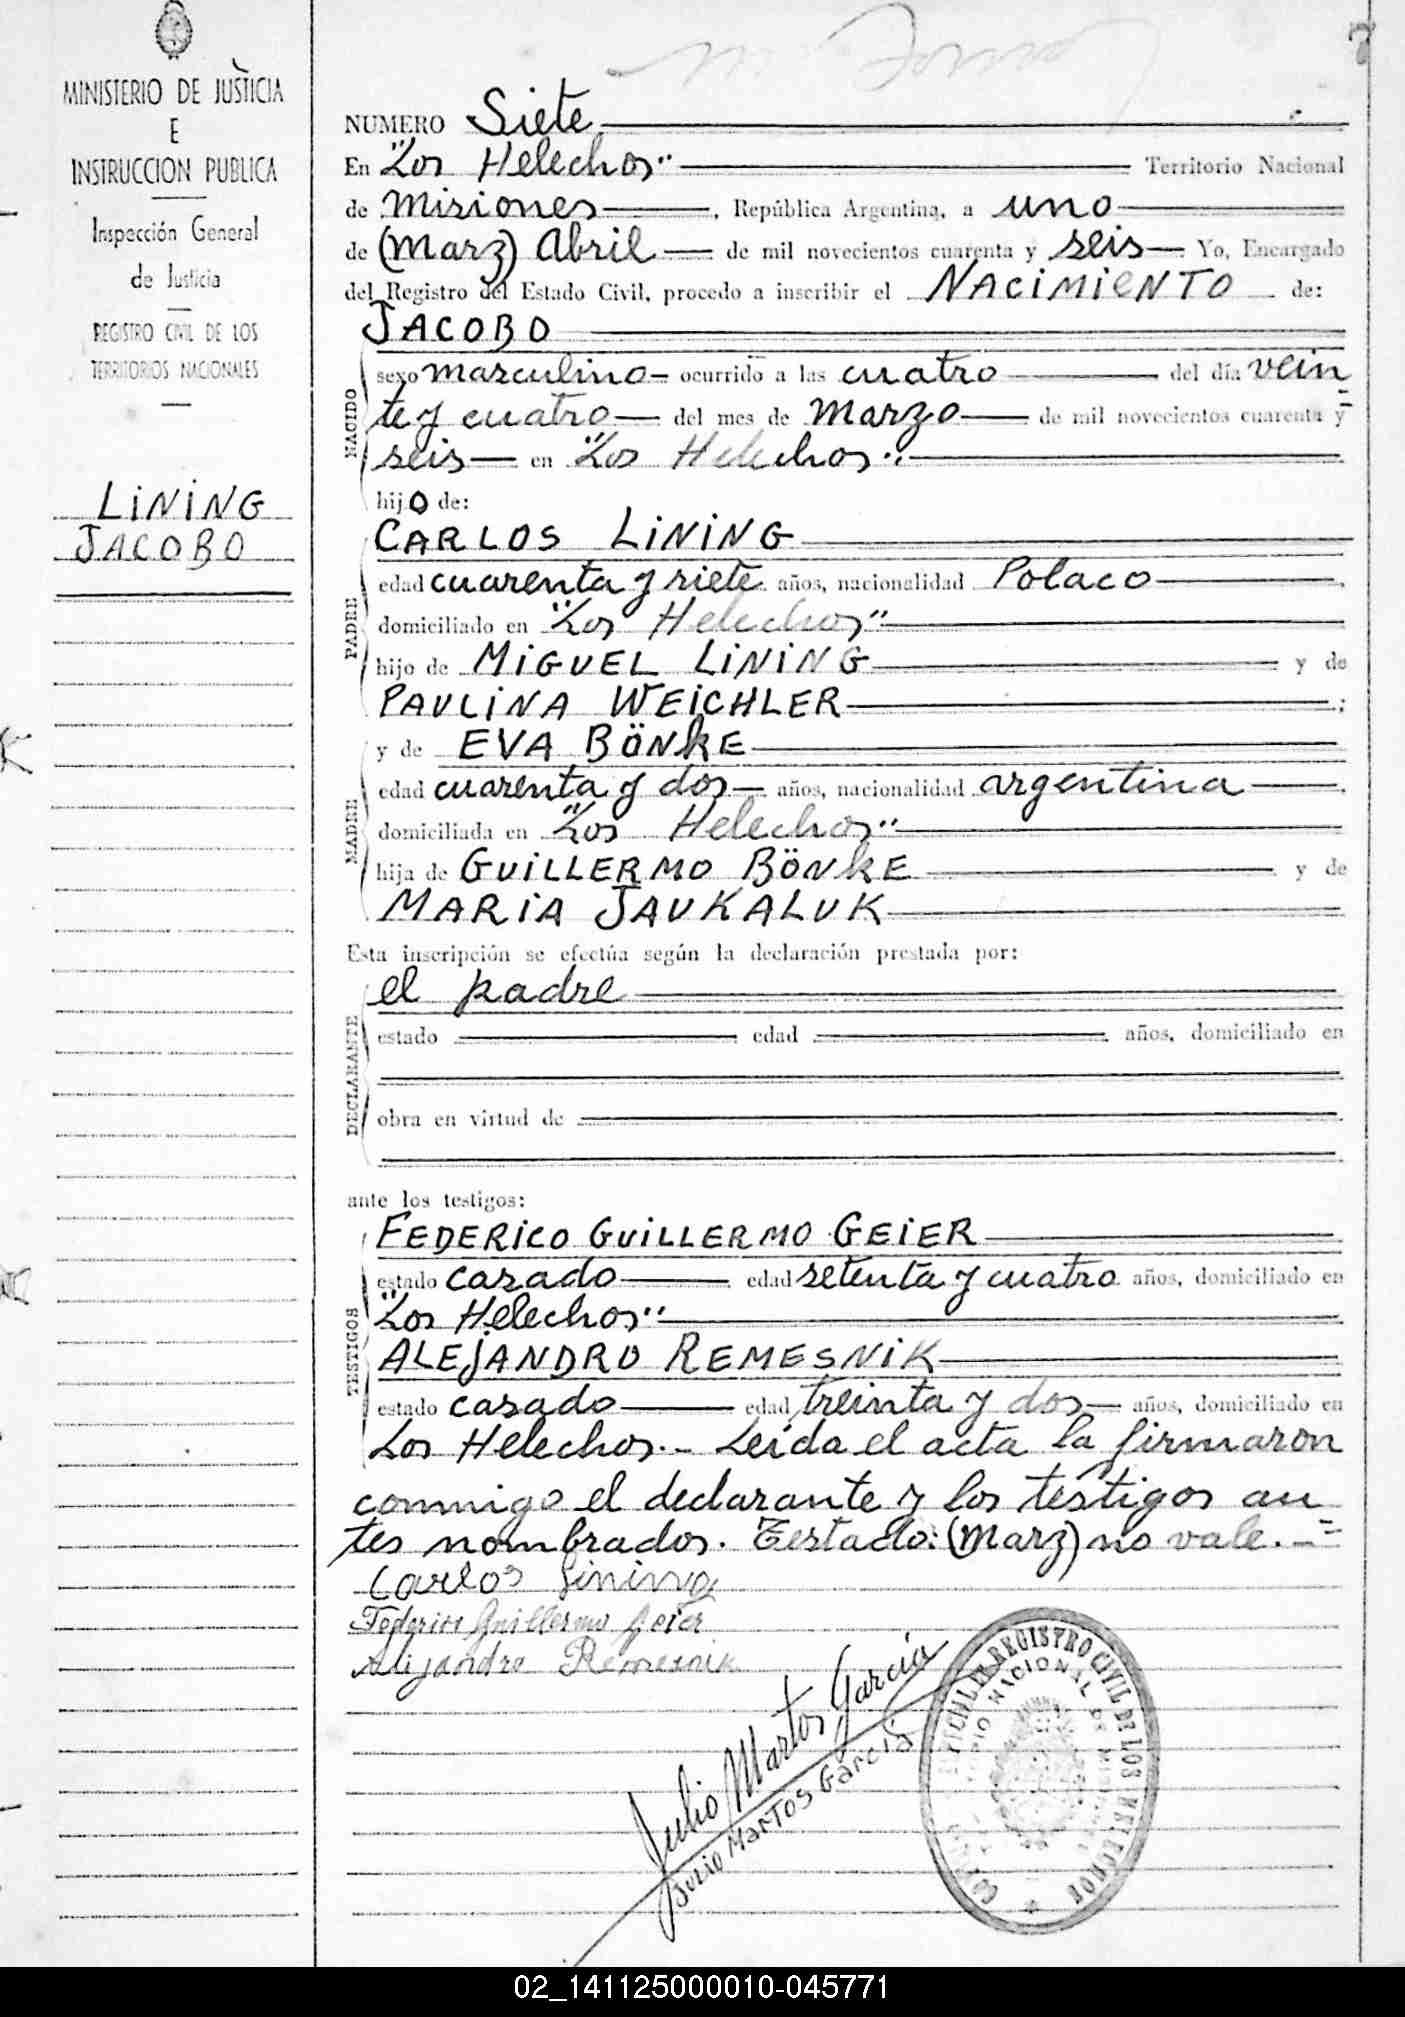 7
MINISTERIO DE JUSTICIA
E
INSTRUCCION PUBLICA
Inspección General
de Justicia
REGISTRO CIVIL DE LOS
TERRITORIOS NACIONALES
LINING
JACOBO
NUMERO Siete
En "Los Helechos" Territorio Nacional
de Misiones, República Argentina, a uno
de (Marz) Abril de mil novecientos cuarenta y seis Yo, Encargado
del Registro del Estado Civil, procedo a inscribir el NACIMIENTO de:
JACOBO
NACIDO
sexo masculino ocurrido a las cuatro del día vein
te y cuatro del mes de Marzo de mil novecientos cuarenta y
seis en "Los Helechos"
hijo de:
CARLOS LINING
PADRE
edad cuarenta y siete años, nacionalidad Polaco
domiciliado en "Los Helechos"
hijo de MIGUEL LINING y de
PAULINA WEICHLER;
y de EVA BÖNKE
MADRE
edad cuarenta y dos años, nacionalidad argentina
domiciliada en "Los Helechos"
hija de GUILLERMO BÖNKE y de
MARIA JAUKALUK
Esta inscripción se efectúa según la declaración prestada por:
el padre
DECLARANTE
estado edad años, domiciliado en
obra en virtud de
ante los testigos:
FEDERICO GUILLERMO GEIER
TESTIGOS
estado casado edad setenta y cuatro años, domiciliado en
"Los Helechos"
ALEJANDRO REMESNIK
estado casado edad treinta y dos años, domiciliado en
Los Helechos.- Leída el acta la firmaron
conmigo el declarante y los testigos an
tes nombrados. Testado: (Marz) no vale.-
Carlos Lining
Federico Guillermo Geier
Alejandro Remesnik
Julio Martos García
Julio Martos García
REGISTRO CIVIL DE LOS HELECHOS
NACIONAL DE MISIONES
02_141125000010-045771